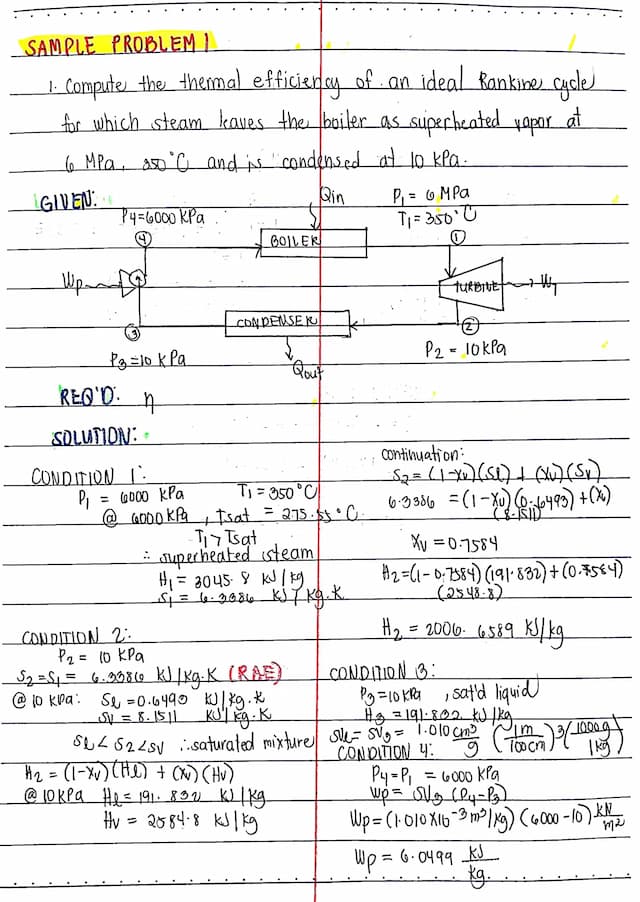 SAMPLE PROBLEM 1
1. Compute the thermal efficiency of an ideal Rankine cycle
for which steam leaves the boiler as superheated vapor at
6 MPa, 350°C and is condensed at 10 kPa.
GIVEN:
Qin
P1 = 6 MPa
T1 = 350°C
P4=6000 kPa
4
BOILER
1
Wp
TURBINE
WT
3
CONDENSER
2
P3=10 kPa
Qout
P2 = 10kPa
REQ'D: η
SOLUTION:
CONDITION 1:
P1 = 6000 kPa T1 = 350°C
@ 6000 kPa, Tsat = 275.55°C
T1 > Tsat
∴ superheated steam
H1 = 3045.8 kJ/kg
S1 = 6.3386 kJ/kg.K
CONDITION 2:
P2 = 10 kPa
S2 = S1 = 6.3386 kJ/kg.K (RAE)
@ 10 kPa: Sl = 0.6493 kJ/kg.K
SV = 8.1511 kJ/kg.K
Sl < S2 < SV ∴ saturated mixture
H2 = (1-Xv)(Hl) + (Xv)(Hv)
@ 10kPa Hl = 191.832 kJ/kg
Hv = 2584.8 kJ/kg
continuation:
S2 = (1-Xv)(Sl) + (Xv)(Sv)
6.3386 = (1-Xv)(0.6493) + (Xv)
(8.1511)
Xv = 0.7584
H2=(1-0.7584)(191.832)+(0.7584)
(2548.8)
H2 = 2006.6589 kJ/kg
CONDITION 3:
P3=10 kPa, sat'd liquid
H3 = 191.832 kJ/kg
SVl = SV3 = 1.010 cm³/g (1m/100cm)³(1000g/1kg)
CONDITION 4:
P4 = P1 = 6000 kPa
Wp = SV3 (P4-P3)
Wp = (1.010x10⁻³ m³/kg)(6000-10) kN/m²
Wp = 6.0499 kJ/kg.